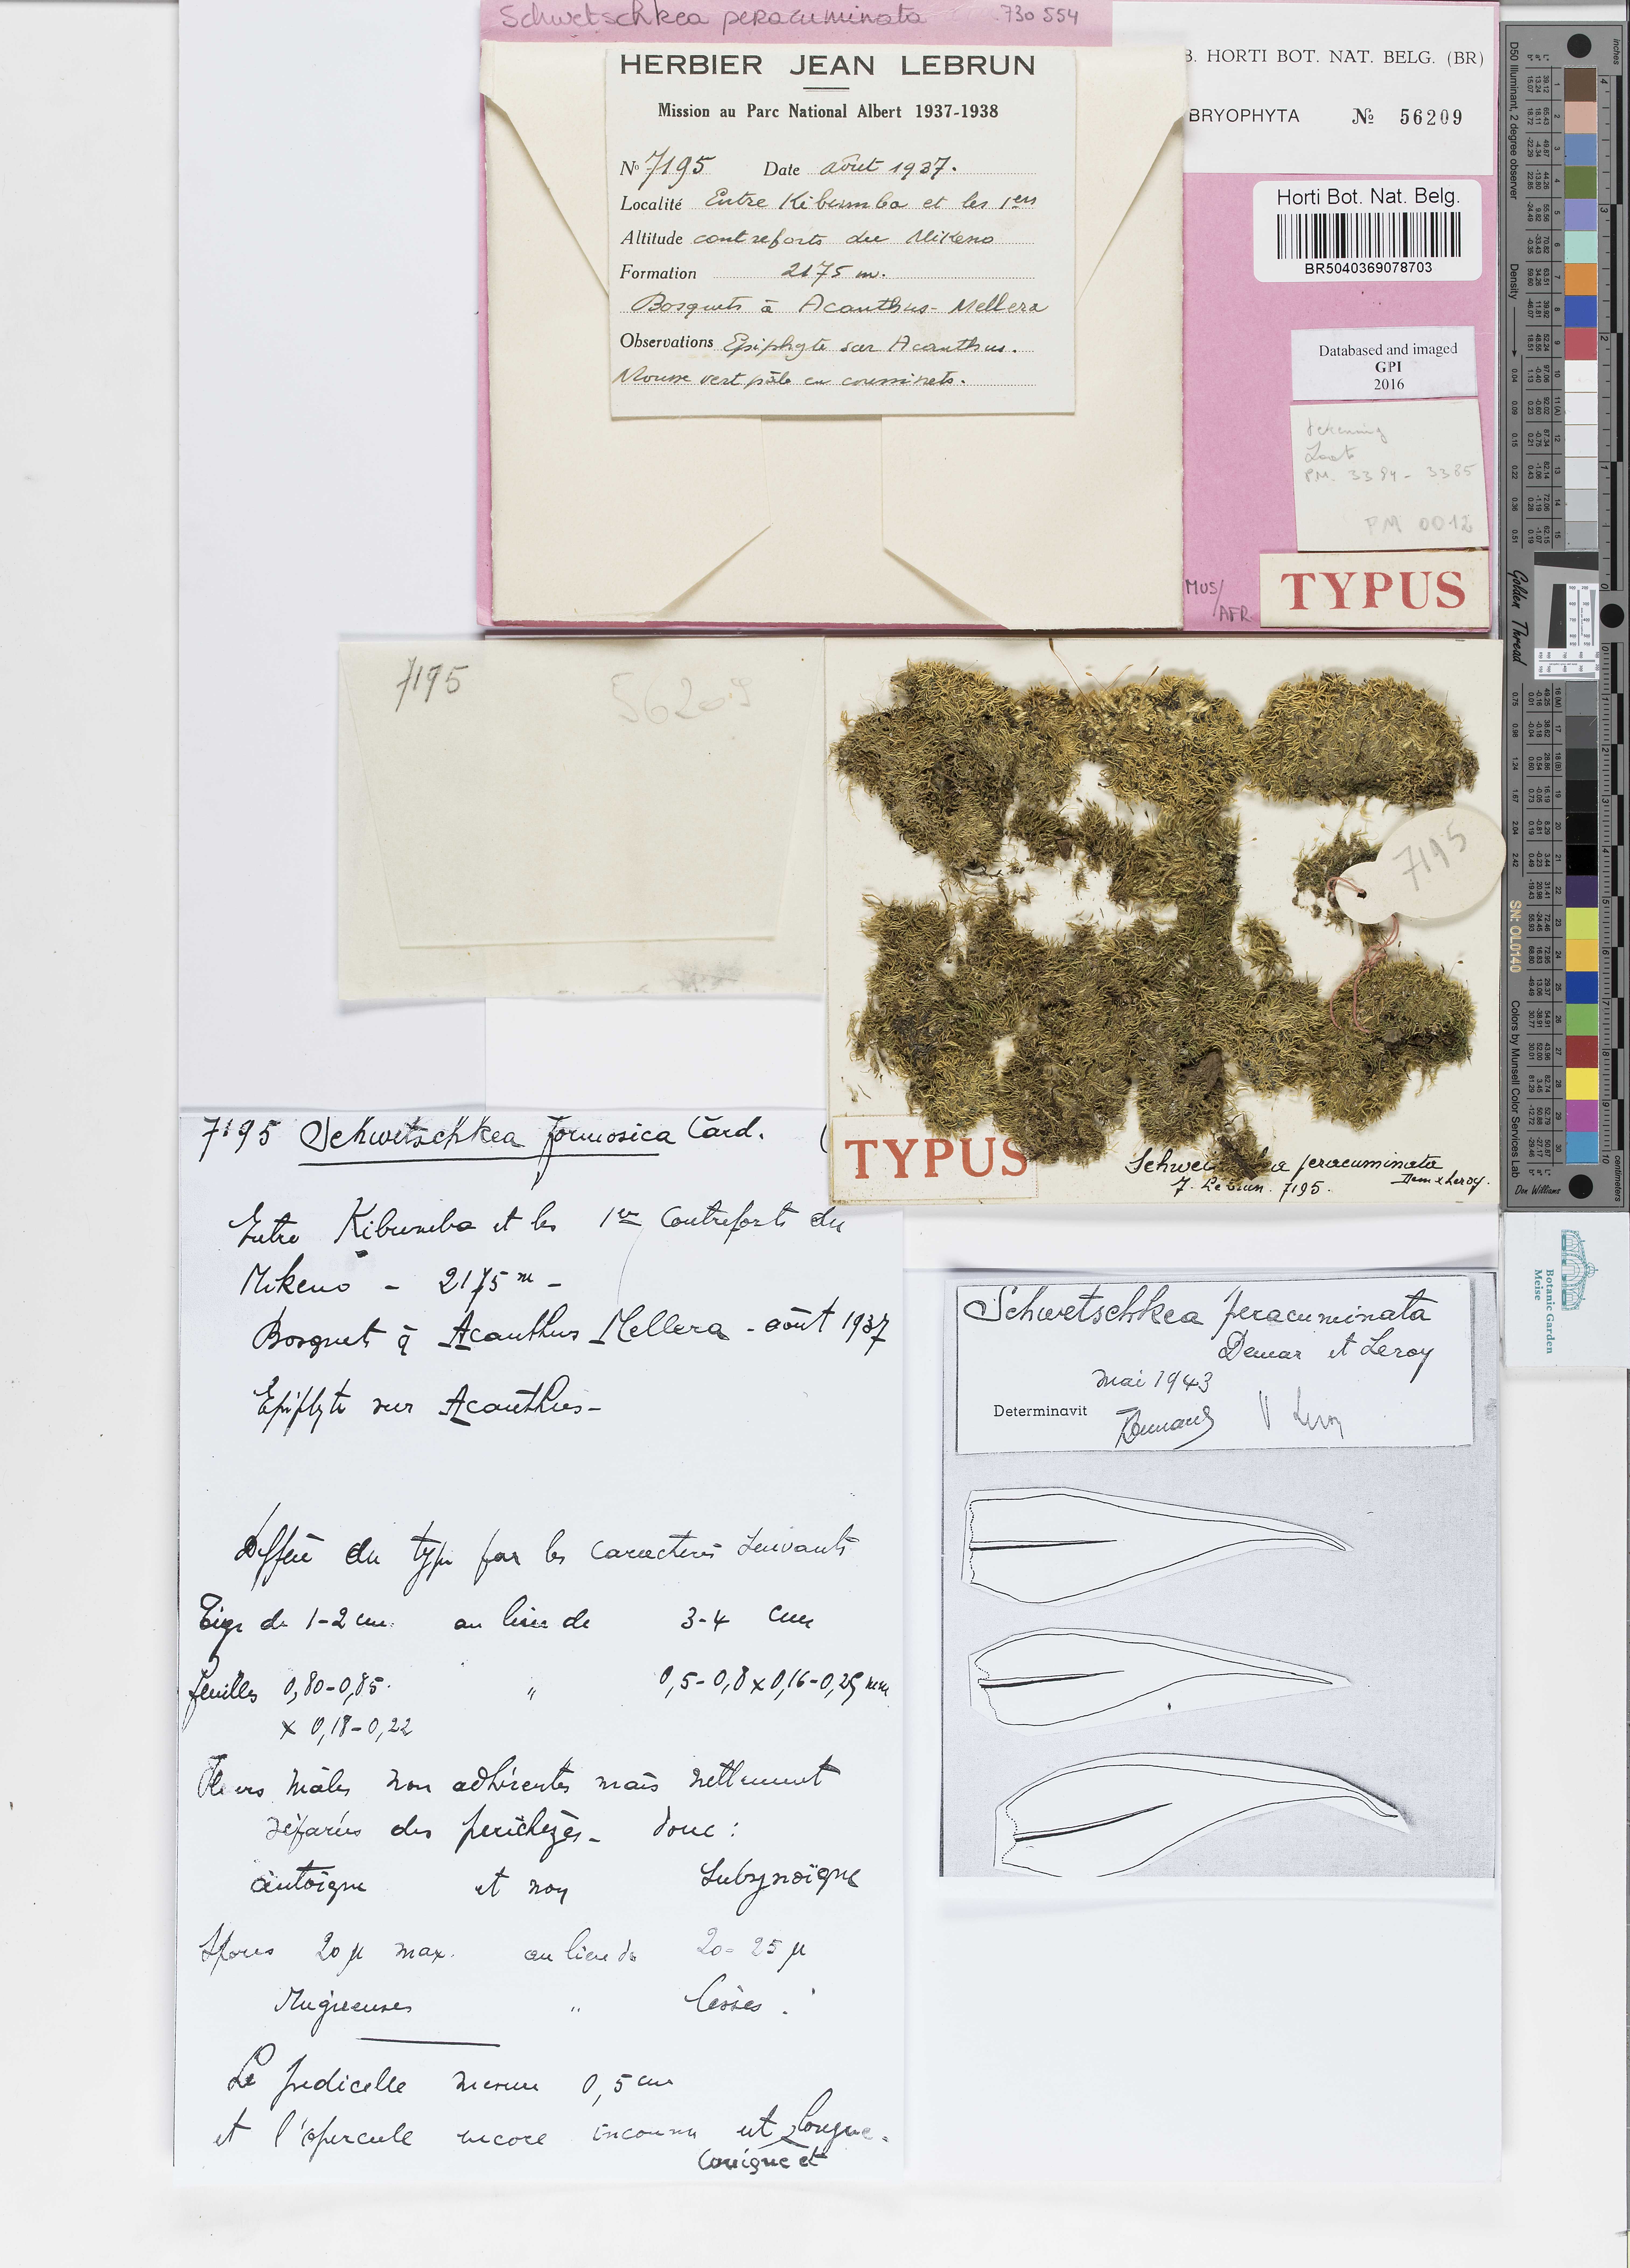 Schwetschkea peracuminata 730 554
HERBIER JEAN LEBRUN
Mission au Parc National Albert 1937-1938
No 7195 Date août 1937.
Localité Entre Kibumba et les 1ers
Altitude contreforts du Mikeno
Formation 2175 m.
Bosquets à Acanthus-Mellera
Observations Epiphyte sur Acanthus.
Mousse vert pâle en coussinets.
B. HORTI BOT. NAT. BELG. (BR)
BRYOPHYTA № 56209
Horti Bot. Nat. Belg.
BR5040369078703
Databased and imaged
GPI
2016
tekening
PM. 3384 - 3385
PM 0012
MUS/
AFR
TYPUS
7195
56209
7195
TYPUS
Schwetschkea peracuminata
Dem & Leroy.
J. Lebrun. 7195.
7195 Schwetschkea formosica Card.
Entre Kibumba et les 1er Contreforts du
Mikeno - 2175 m -
Bosquets à Acanthus Mellera - août 1937
Epiphyte sur Acanthus -
Diffère du type par les caractères suivants
Tige de 1-2 cm. au lieu de 3-4 cm
feuilles 0,80-0,85 " 0,5-0,8 x 0,16-0,25 mm
x 0,18-0,22
Fleurs mâles non adhérentes mais nettement
séparées des perichèzes - donc :
autoïque et non subsynoïque
Spores 20 µ max. au lieu de 20-25 µ
Rugueuses " lisses.
Le pedicelle mesure 0,5 cm
et l'opercule encore inconnu est longue.
conique et
Schwetschkea peracuminata
Demar et Leroy
mai 1943
Determinavit Demaret V Leroy
Golden Thread
D50 Illuminant, 2 degree observer
Density
SN: OL0140
Colors by Munsell Color Services Lab
Don Williams
inches
centimeters
Botanic Garden
Meise